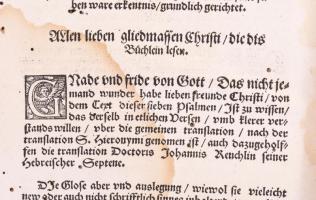 hen ware erkentnis/grundlich gerichtet.
Allen lieben gliedmassen Christi/die dis
Büchlein lesen.
GNade vnd fride von Gott/Das nicht je-
mand wunder habe lieben freunde Christi/von
dem Text dieser sieben Psalmen/Ist zu wissen/
das derselb in etlichen Versen/vmb klerer ver-
stands willen/vber die gemeinen translation/nach der
translation S. Hieronymi genomen ist/auch dazugeholf-
fen die translation Doctoris Johannis Reuchlin seiner
Hebreischer Septene.
DJe Glose aber vnd auslegung/wiewol sie vieleicht
new oder auch nicht schrifftlich